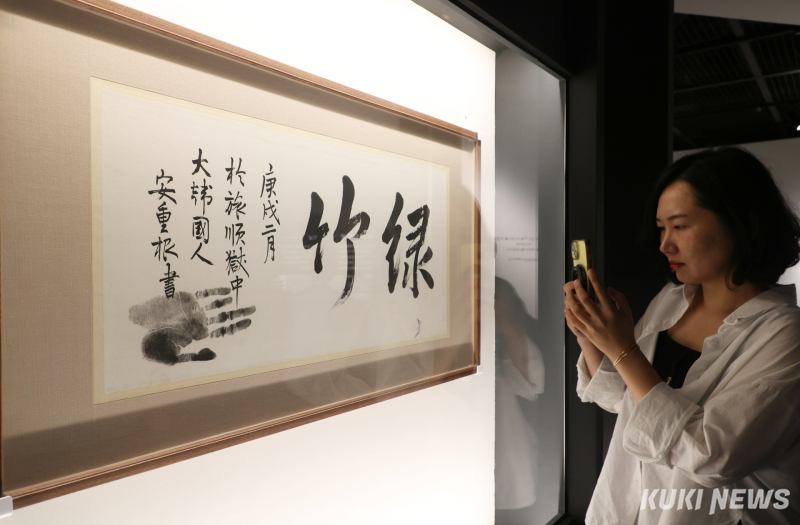 綠竹
庚戌二月
於旅順獄中
大韓國人
安重根書
KUKI NEWS